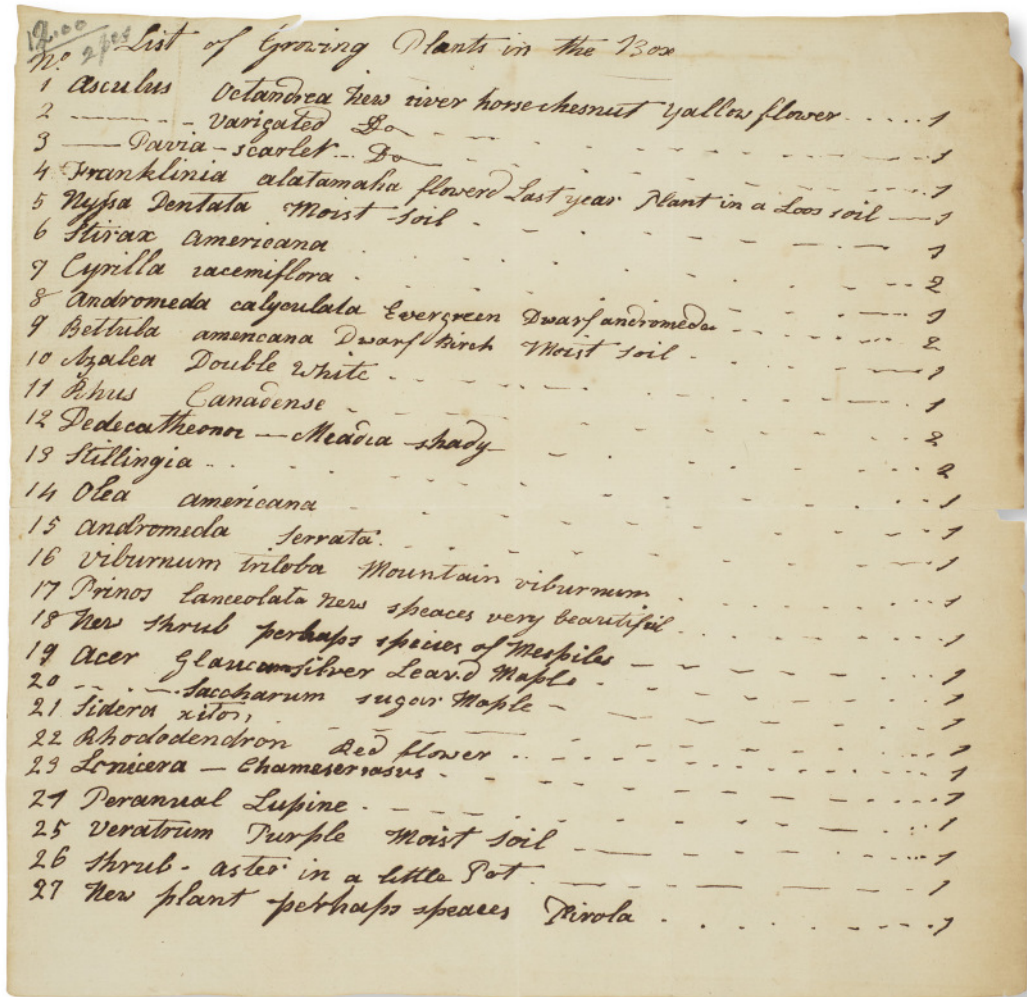 12.00
2 pcs
List of Growing Plants in the Box
No.
1 Asculus Octandrea New river horse chesnut yallow flower ..... 1
2 ------- Varigated Do - - - - - - - - - 1
3 --- Pavia - scarlet ... Do - - - - - - - - - 1
4 Franklinia alatamaha flowerd Last year Plant in a Loos soil --- 1
5 Nyssa Dentata Moist Soil - - - - - - - 1
6 Stirax americana - - - - - - - 2
7 Cyrilla racemiflora - - - - - - - 1
8 Andromeda calyculata Evergreen Dwarf andromeda - - - - 2
9 Bettula amencana Dwarf Birch Moist soil - - - - - 1
10 Azalea Double white - - - - - - - 1
11 Rhus Canadense - - - - - - - 2
12 Dedecatheonor — Meadia shady - - - - - - - 2
13 Stillingia - - - - - - - 1
14 Olea americana - - - - - - - 1
15 Andromeda serrata - - - - - - - 1
16 Viburnum triloba Mountain viburnum - - - - - 1
17 Prinos Lanceolata New speaces very beautifull - - - - - 1
18 New shrub perhaps species of Mespiles - - - - - 1
19 Acer Glaucum silver Leav.d Maple - - - - - 1
20 - - . - Saccharum sugar Maple - - - - - 1
21 Sidera xilon, - - - - - - - 1
22 Rhododendron Red flower - - - - - 1
23 Lonicera — Chameserrasus - - - - - 1
24 Peranual Lupine - - - - - 1
25 Veratrum Purple Moist soil - - - - - 1
26 Shrub - aster in a little Pot - - - - - 1
27 New plant perhaps speaces Pirola - - - - - 1